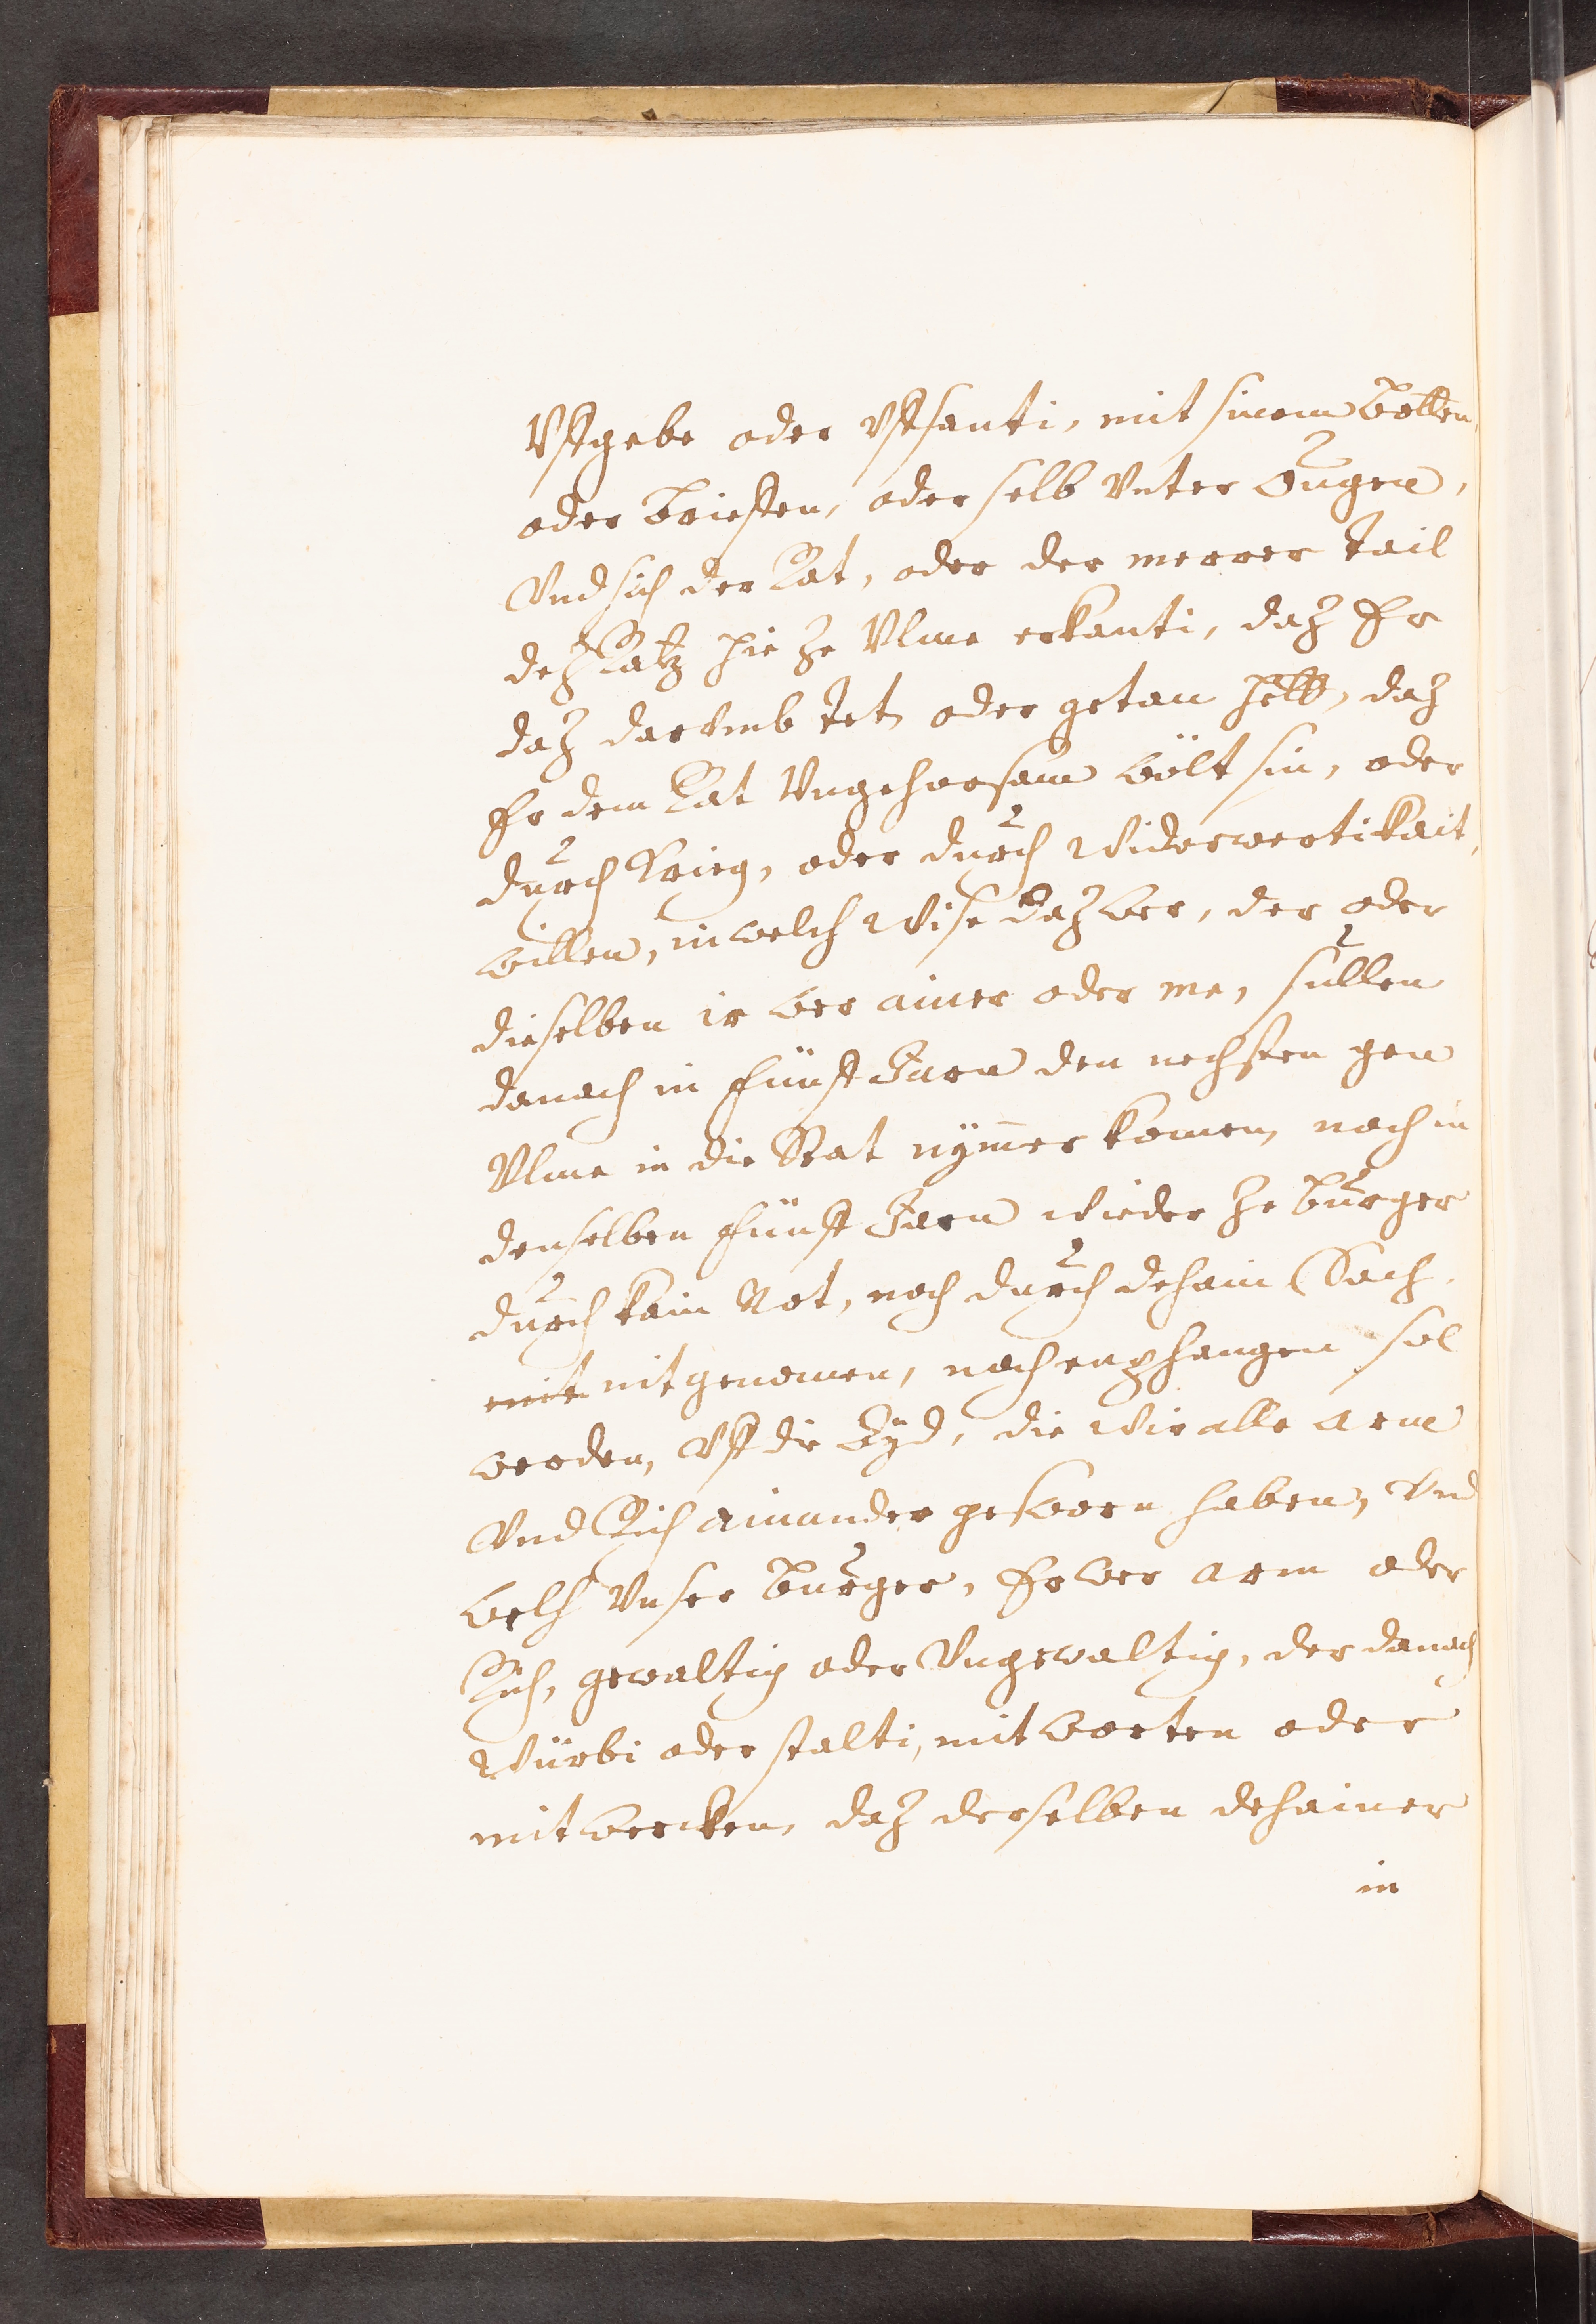 Vffgebe oder Vffsanti, mit sinem Botten,
oder Brieffen, oder selb Vnter Ougen,
Vnd sich der Rat, oder der merrer tail
deß Ratz hie ze Vlme erkanti, daz Er
daz darvmb tet, oder getan hett, daz
Er dem Rat Vngehorsam wölt sin, oder
durch Krieg, oder durch Widerwertikait,
willen, in welch Wise daz wer, der oder
dieselben ir wer ainer oder me, sullen
danach in fünff Jaren den nechsten gen
Vlme in die Stat nymer komen, noch in
denselben fünff Jaren Wieder ze Burger
durch kain Not, noch durch dehain Sach,
mit nit genomen, noch enphangen sol
werden, Vff die Eyd, die Wir alle arm
Vnd Rich ainander gesworn haben, Vnd
welh Vnser Burger, Er wer arm oder
Rich, gewaltig oder Vngewaltig, der danach
Würbi oder stalti, mit worten oder
mit wercken, daz derselben dehainer
in